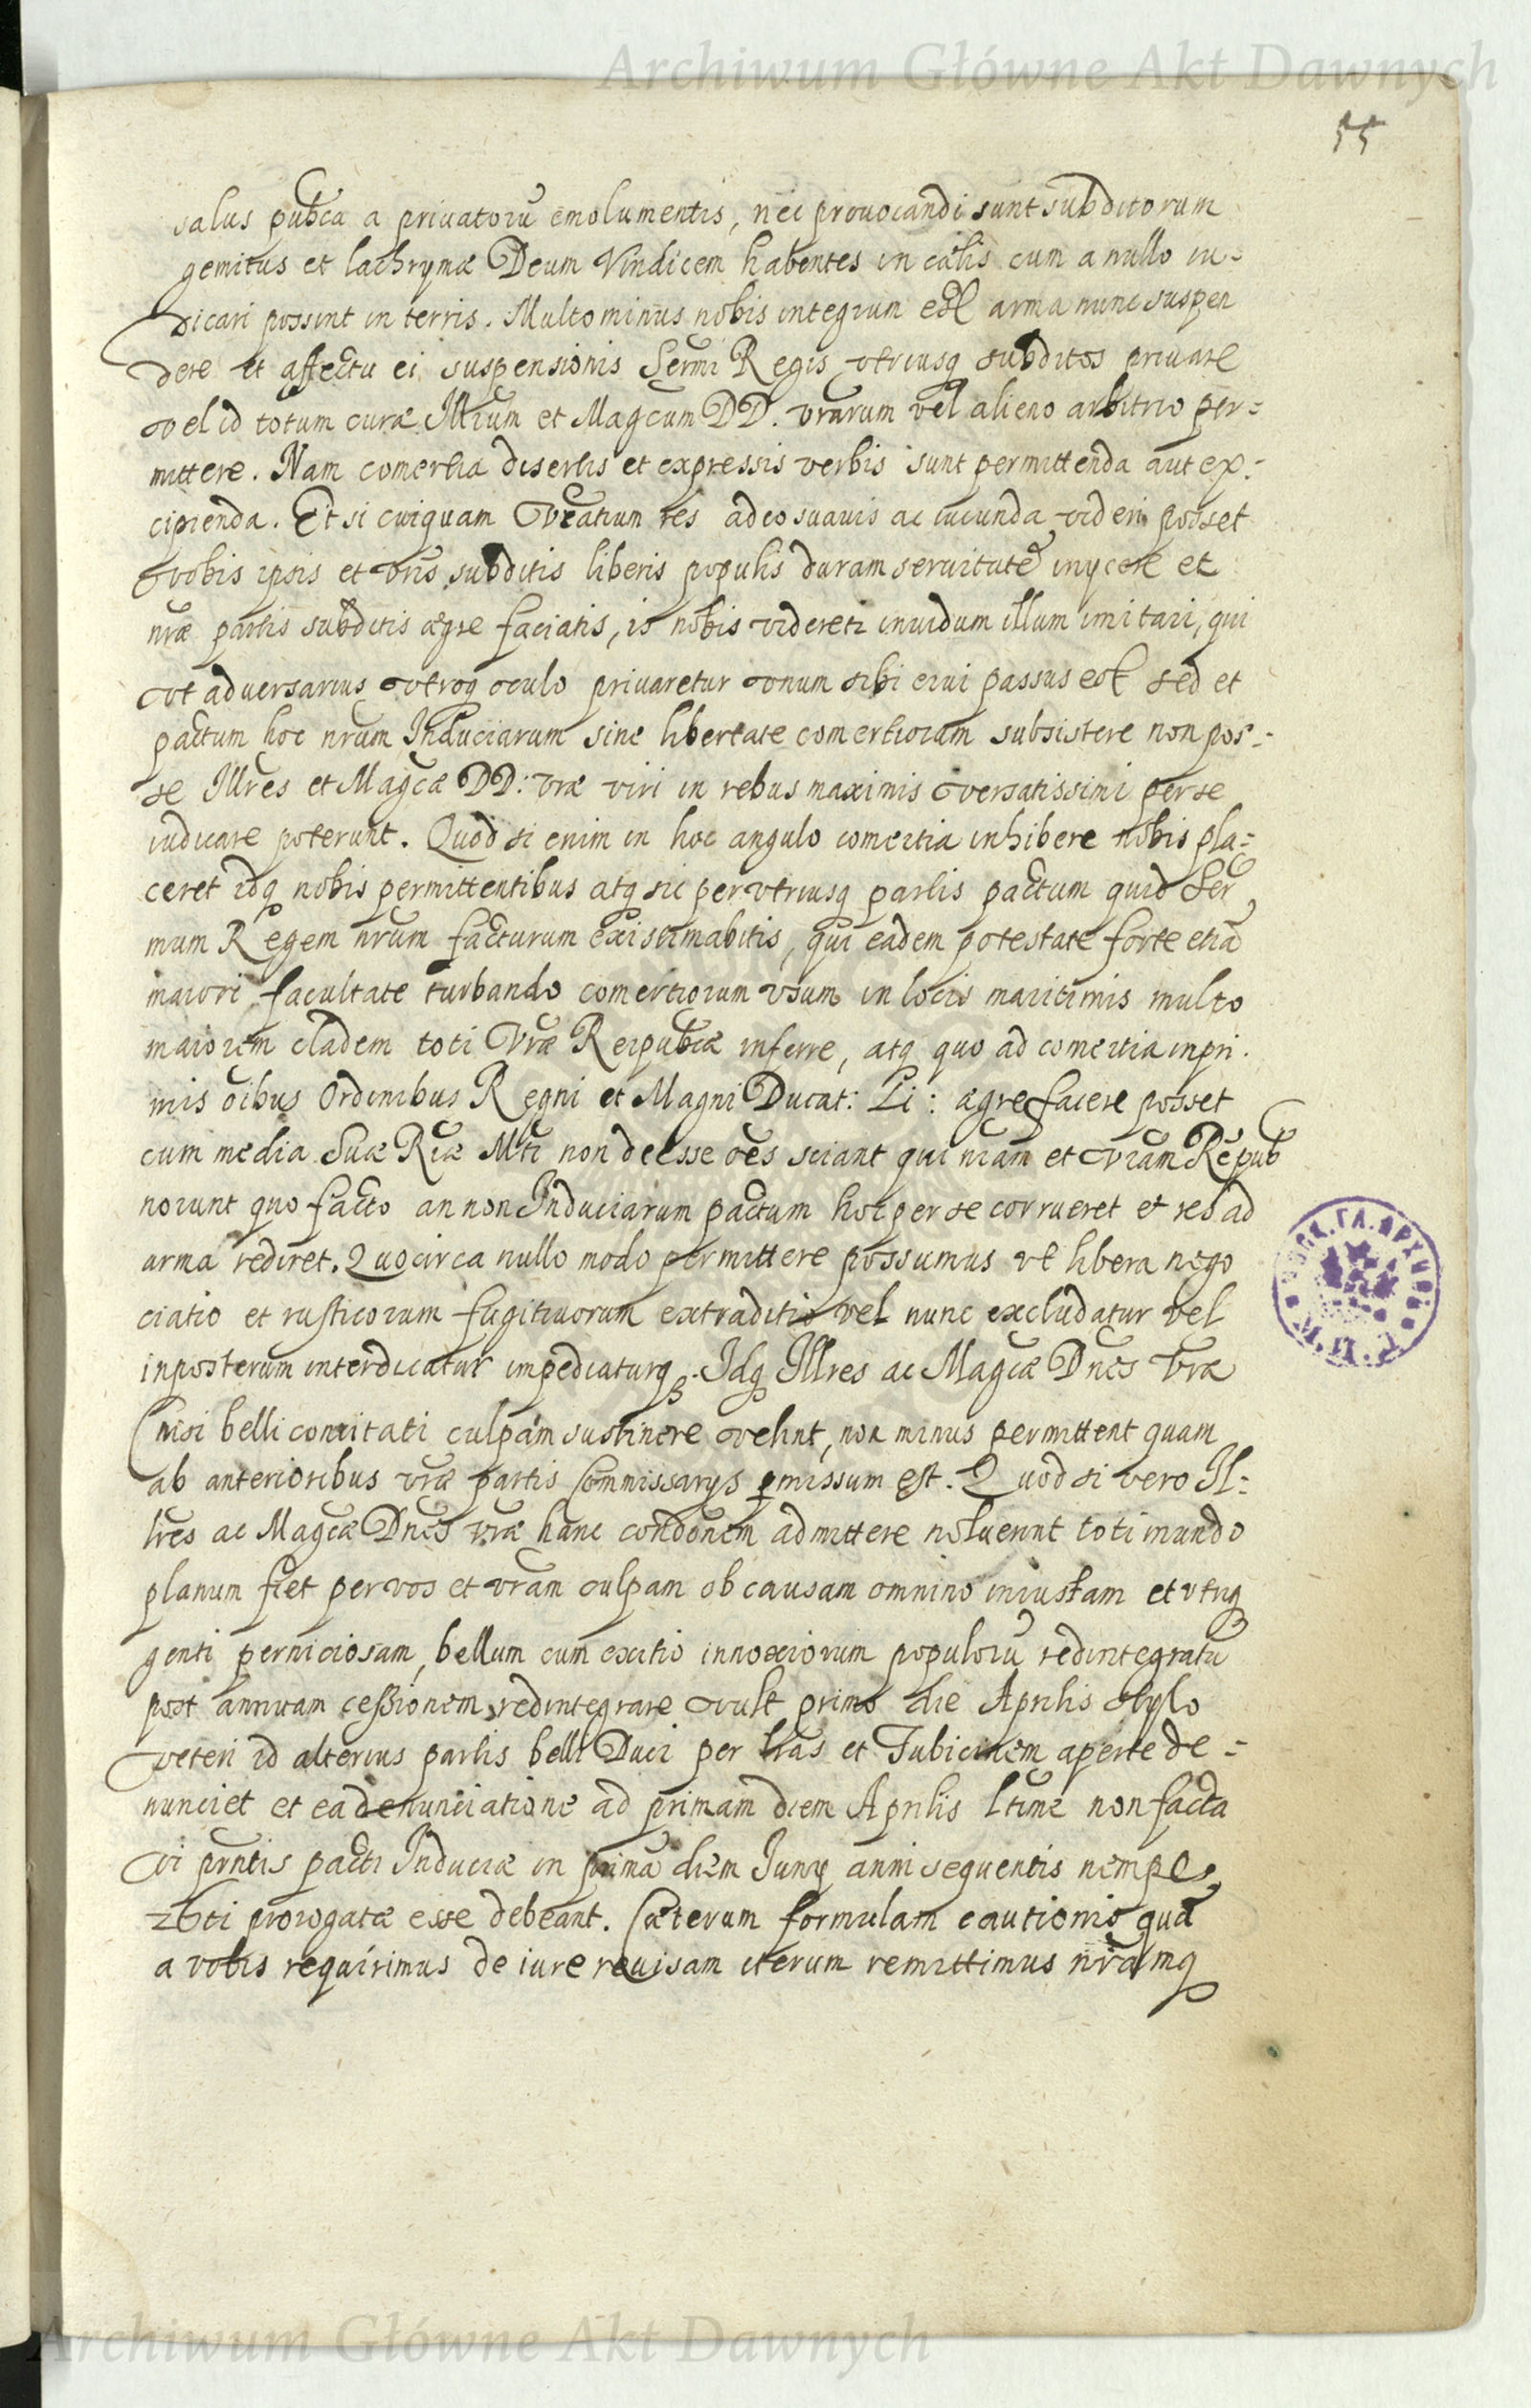 Archiwum Główne Akt Dawnych
55
salus pubca a priuatorū emolumentis, nec prouocandi sunt subditorum
gemitus et lachrymæ Deum Vindicem habentes in cælis cum a nullo iu-
dicari possint in terris. Multo minus nobis integrum est arma nunc suspen
dere et affectu ei suspensionis Sermi Regis vtriusq subditos priuare
vel id totum curæ Illrium et Magcum DD. vrarum vel alieno arbitrio per=
mittere. Nam comertia disertis et expressis verbis sunt permittenda aut ex=
cipienda. Et si cuiquam Vratium res adeo suauis ac iucunda videri posset
vobis ipsis et vris subditis liberis populis duram seruitutē inycere et
nræ partis subditis ægre faciatis, is nobis videreti inuidum illum imitari, qui
vt adversarius vtroq oculo priuaretur vnum sibi erui passus est sed et
pactum hoc nrum Induciarum sine libertate comertiorum subsistere non pos=
se Illres et Magcæ DD: vræ viri in rebus maximis versatissimi per se
iudicare poterunt. Quod si enim in hoc angulo comertia inhibere nobis pla=
ceret idq nobis permittentibus atq sic per vtriusq partis pactum quid Ser
mum Regem nrum facturum existimabitis, qui eadem potestate forte etiā
maiori facultate turbando comertiorum vsum in locis maritimis multo
maiorem cladem toti Vræ Reipubcæ inferre, atq quo ad comertia inpri.
mis oibus Ordinibus Regni et Magni Ducat: Li: ægre facere posset
cum media Suæ Riæ Mti non deesse oēs sciant qui nram et vram Repub
norunt quo facto an non Induciarum pactum hoc per se corrueret et res ad
arma rediret. Quocirca nullo modo permittere possumus vt libera nego
ciatio et rusticorum fugitiuorum extraditio vel nunc excludatur vel
inposterum interdicatur impediaturq. Idq Illres ac Magcæ Dnes Vræ
(nisi belli concitati culpam sustinere velint, non minus permittent quam
ab anterioribus vræ partis Commissarys pmissum est. Quod si vero Il=
lres ac Magcæ Dnes vræ hanc condonem admittere noluerint toti mundo
planum fiet per vos et vram culpam ob causam omnino iniustam et vtriq
genti perniciosam, bellum cum exitio innoxiorum populorū redintegratū
post annuam cessionem, redintegrare vult primo die Aprilis stylo
veteri id alterius partis belli Duci per lras et Tubicinem aperte de =
nunciet et ea denunciatione ad primam diem Aprilis ltime non facta
vi prntis pacti Induciæ in primā diem Iuny anni sequentis nempe
26ti prorogatæ esse debeant. Cæterum formulam cautionis quā
a vobis requirimus de iure reuisam iterum remittimus nramq
Archiwum Główne Akt Dawnych